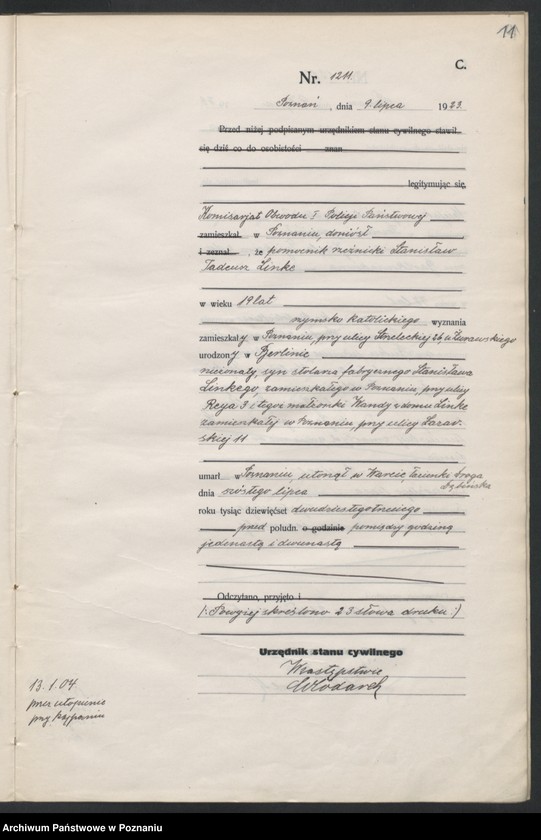 11
C.
Nr. 1211.
Poznań, dnia 9. lipca 1923.
Przed niżej podpisanym urzędnikiem stanu cywilnego stawił
się dziś co do osobistości znan
legitymując się,
Komisarjat Obwodu I Policji Państwowej
zamieszkał w Poznaniu, doniósł
i zeznał, że pomocnik rzeźnicki Stanisław
Tadeusz Linke
w wieku 19 lat
rzymsko katolickiego wyznania
zamieszkały w Poznaniu, przy ulicy Strzeleckiej 26, u Żurawskiego
urodzony w Berlinie
nieżonaty, syn stolarza fabrycznego Stanisława
Linkego, zamieszkałego w Poznaniu, przy ulicy
Reya 3 i tegoż małżonki Wandy z domu Linke
zamieszkałej w Poznaniu, przy ulicy
skiej 11
umarł w Poznaniu, utonął w Warcie, droga
Dębińska
dnia szóstego lipca
roku tysiąc dziewięćset dwudziestego trzeciego
przed połudn. o godzinie pomiędzy godziną
jedenastą i dwunastą
Odczytano, przyjęto i
/: Powyżej skreślono 23 słowa druku :/
Urzędnik stanu cywilnego
W zastępstwie
Włodarek
13.1.04.
przez utopienie
przy kąpaniu
Archiwum Państwowe w Poznaniu